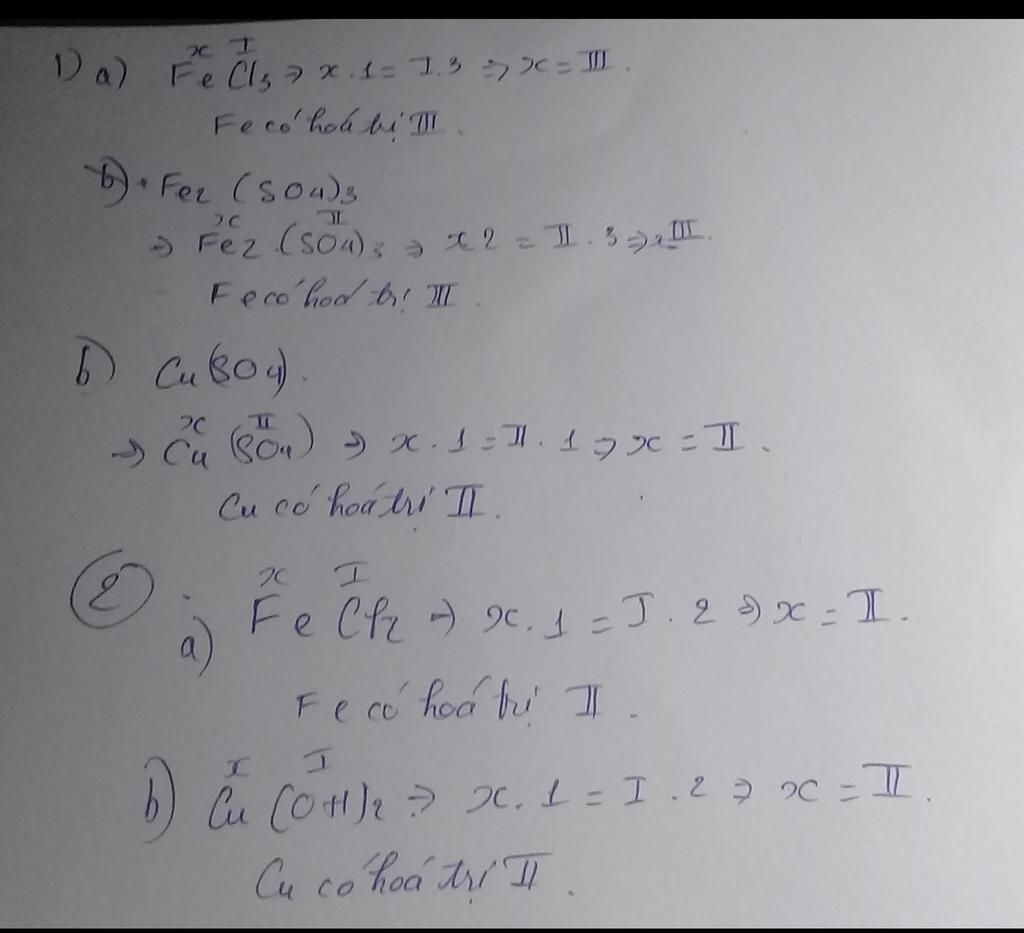 1) a) FeCl3 → x.1 = I.3 => x = III.
x I
Fe có hoá trị III.
b) • Fe2 (SO4)3
x II
=> Fe2.(SO4)3 => x 2 = II.3 => x III.
Fe có hoá trị III.
b) Cu(SO4).
x II
=> Cu (SO4) => x.1 = II.1 => x = II.
Cu có hoá trị II.
2
x I
a) FeCl2 => x.1 = I.2 => x = II.
Fe có hoá trị II.
x I
b) Cu(OH)2 => x.1 = I.2 => x = II.
Cu có hoá trị II.